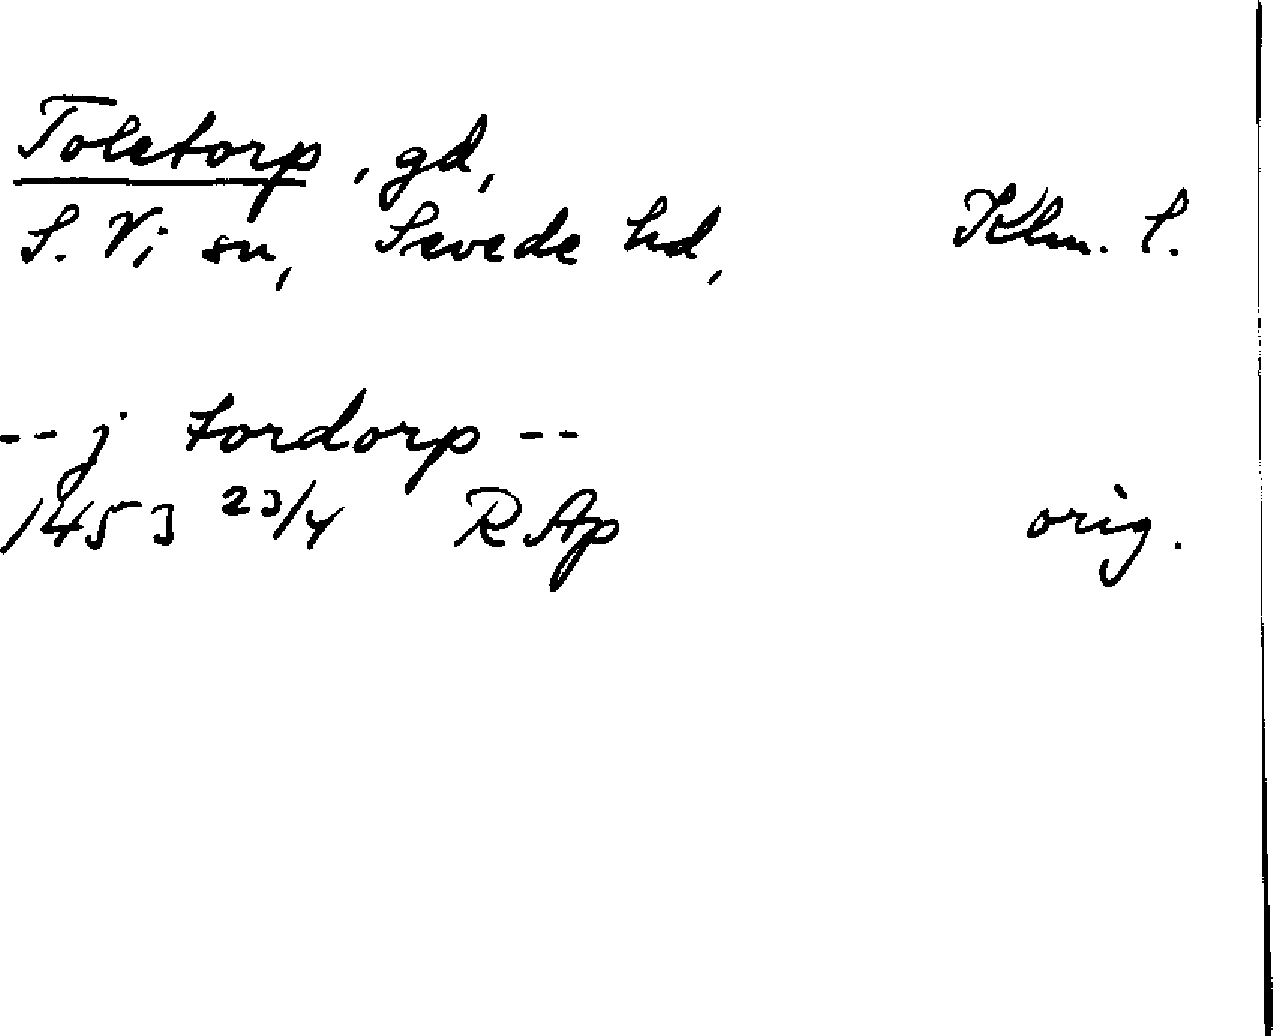 Toletorp, gd,
S. Vi sn, Sevede hd, Klm. l.
-- j tordorp --
1453 23/4 RAp orig.